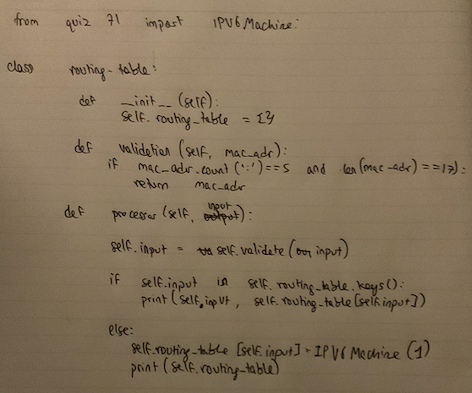 from quiz 71 impost IPV6 Machine:
class routing-table:
def __init__ (self):
self.routing_table = {}
def validation (self, mac_adr):
if mac_adr.count(':')==5 and len(mac-adr)==17):
return mac_adr
def processor (self, input):
self.input = self.validate (input)
if self.input in self.routing_table.keys():
print (self.input, self.routing_table[self.input])
else:
self.routing_table [self.input] = IPV6 Machine (1)
print (self.routing_table)